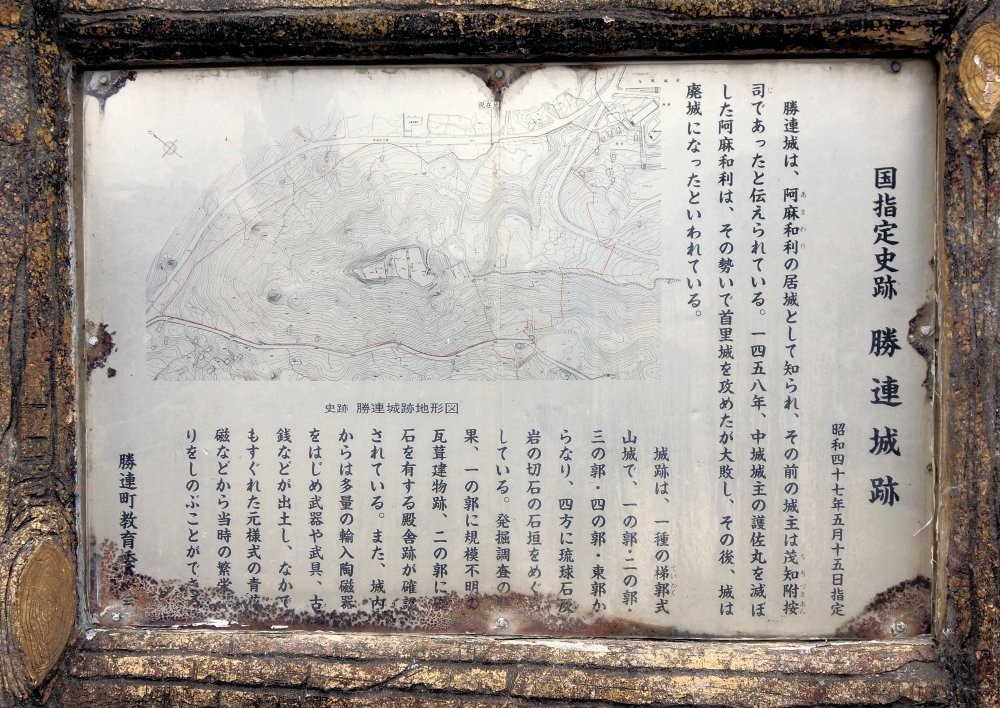 国指定史跡 勝連城跡
昭和四十七年五月十五日指定
勝連城は、阿麻和利の居城として知られ、その前の城主は茂知附按
司であったと伝えられている。一四五八年、中城城主の護佐丸を滅ぼ
した阿麻和利は、その勢いで首里城を攻めたが大敗し、その後、城は
廃城になったといわれている。
城跡は、一種の梯郭式
山城で、一の郭・二の郭
三の郭・四の郭・東郭か
らなり、四方に琉球石灰
岩の切石の石垣をめぐ
している。発掘調査の
果、一の郭に規模不明の
瓦葺建物跡、二の郭に
石を有する殿舎跡が確認
されている。また、城内
からは多量の輸入陶磁器
をはじめ武器や武具、古
銭などが出土し、なかで
もすぐれた元様式の青
磁などから当時の繁栄
りをしのぶことができ
勝連町教育委
史跡 勝連城跡地形図